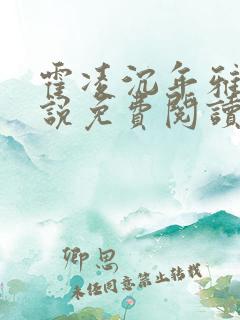 霍凌沉年雅
説免費閱讀
卿思
未经同意禁止转载